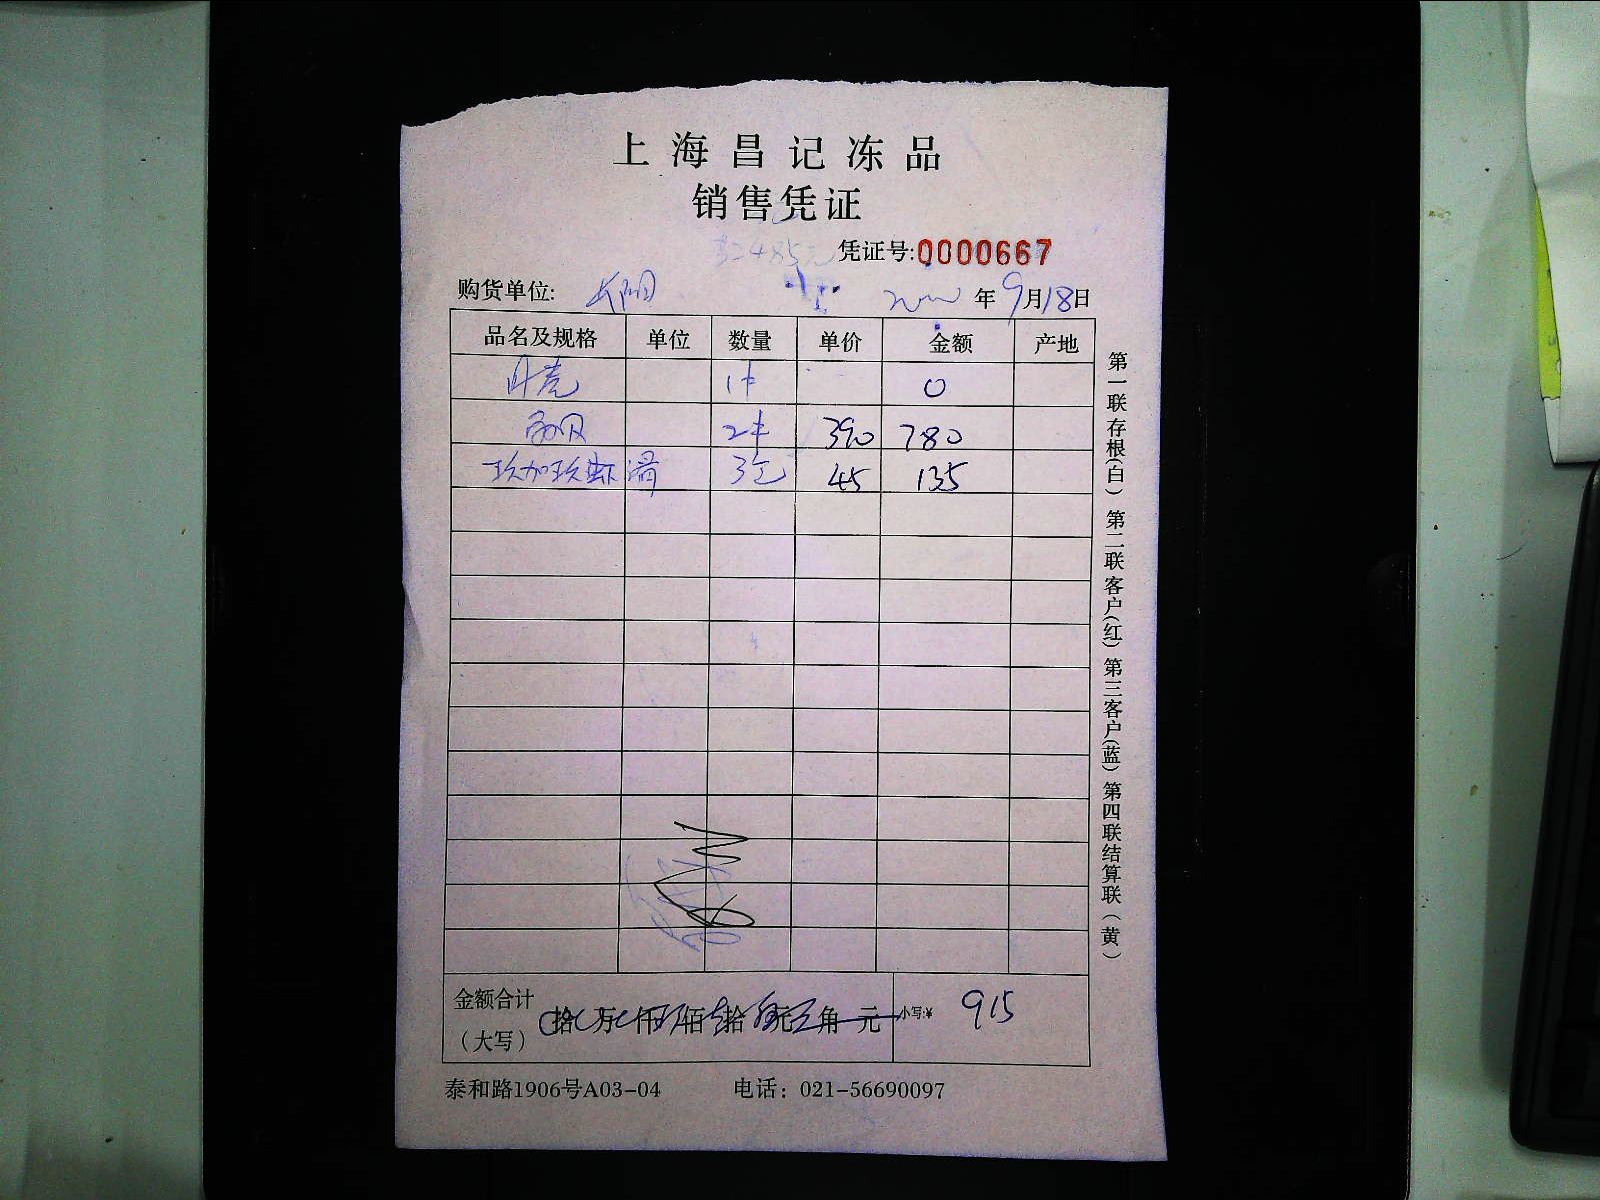 上海昌记冻品
销售凭证
凭证号:0000667
购货单位: 年9月18日
品名及规格 单位 数量 单价 金额 产地
贝壳 1 0
2 390 780
玖加玖虾滑 3包 45 135
金额合计
(大写) 拾 万 仟 佰 拾 元 角 元 小写:¥ 915
泰和路1906号A03-04 电话: 021-56690097
第一联存根(白) 第二联客户(红) 第三客户(蓝) 第四联结算联(黄)